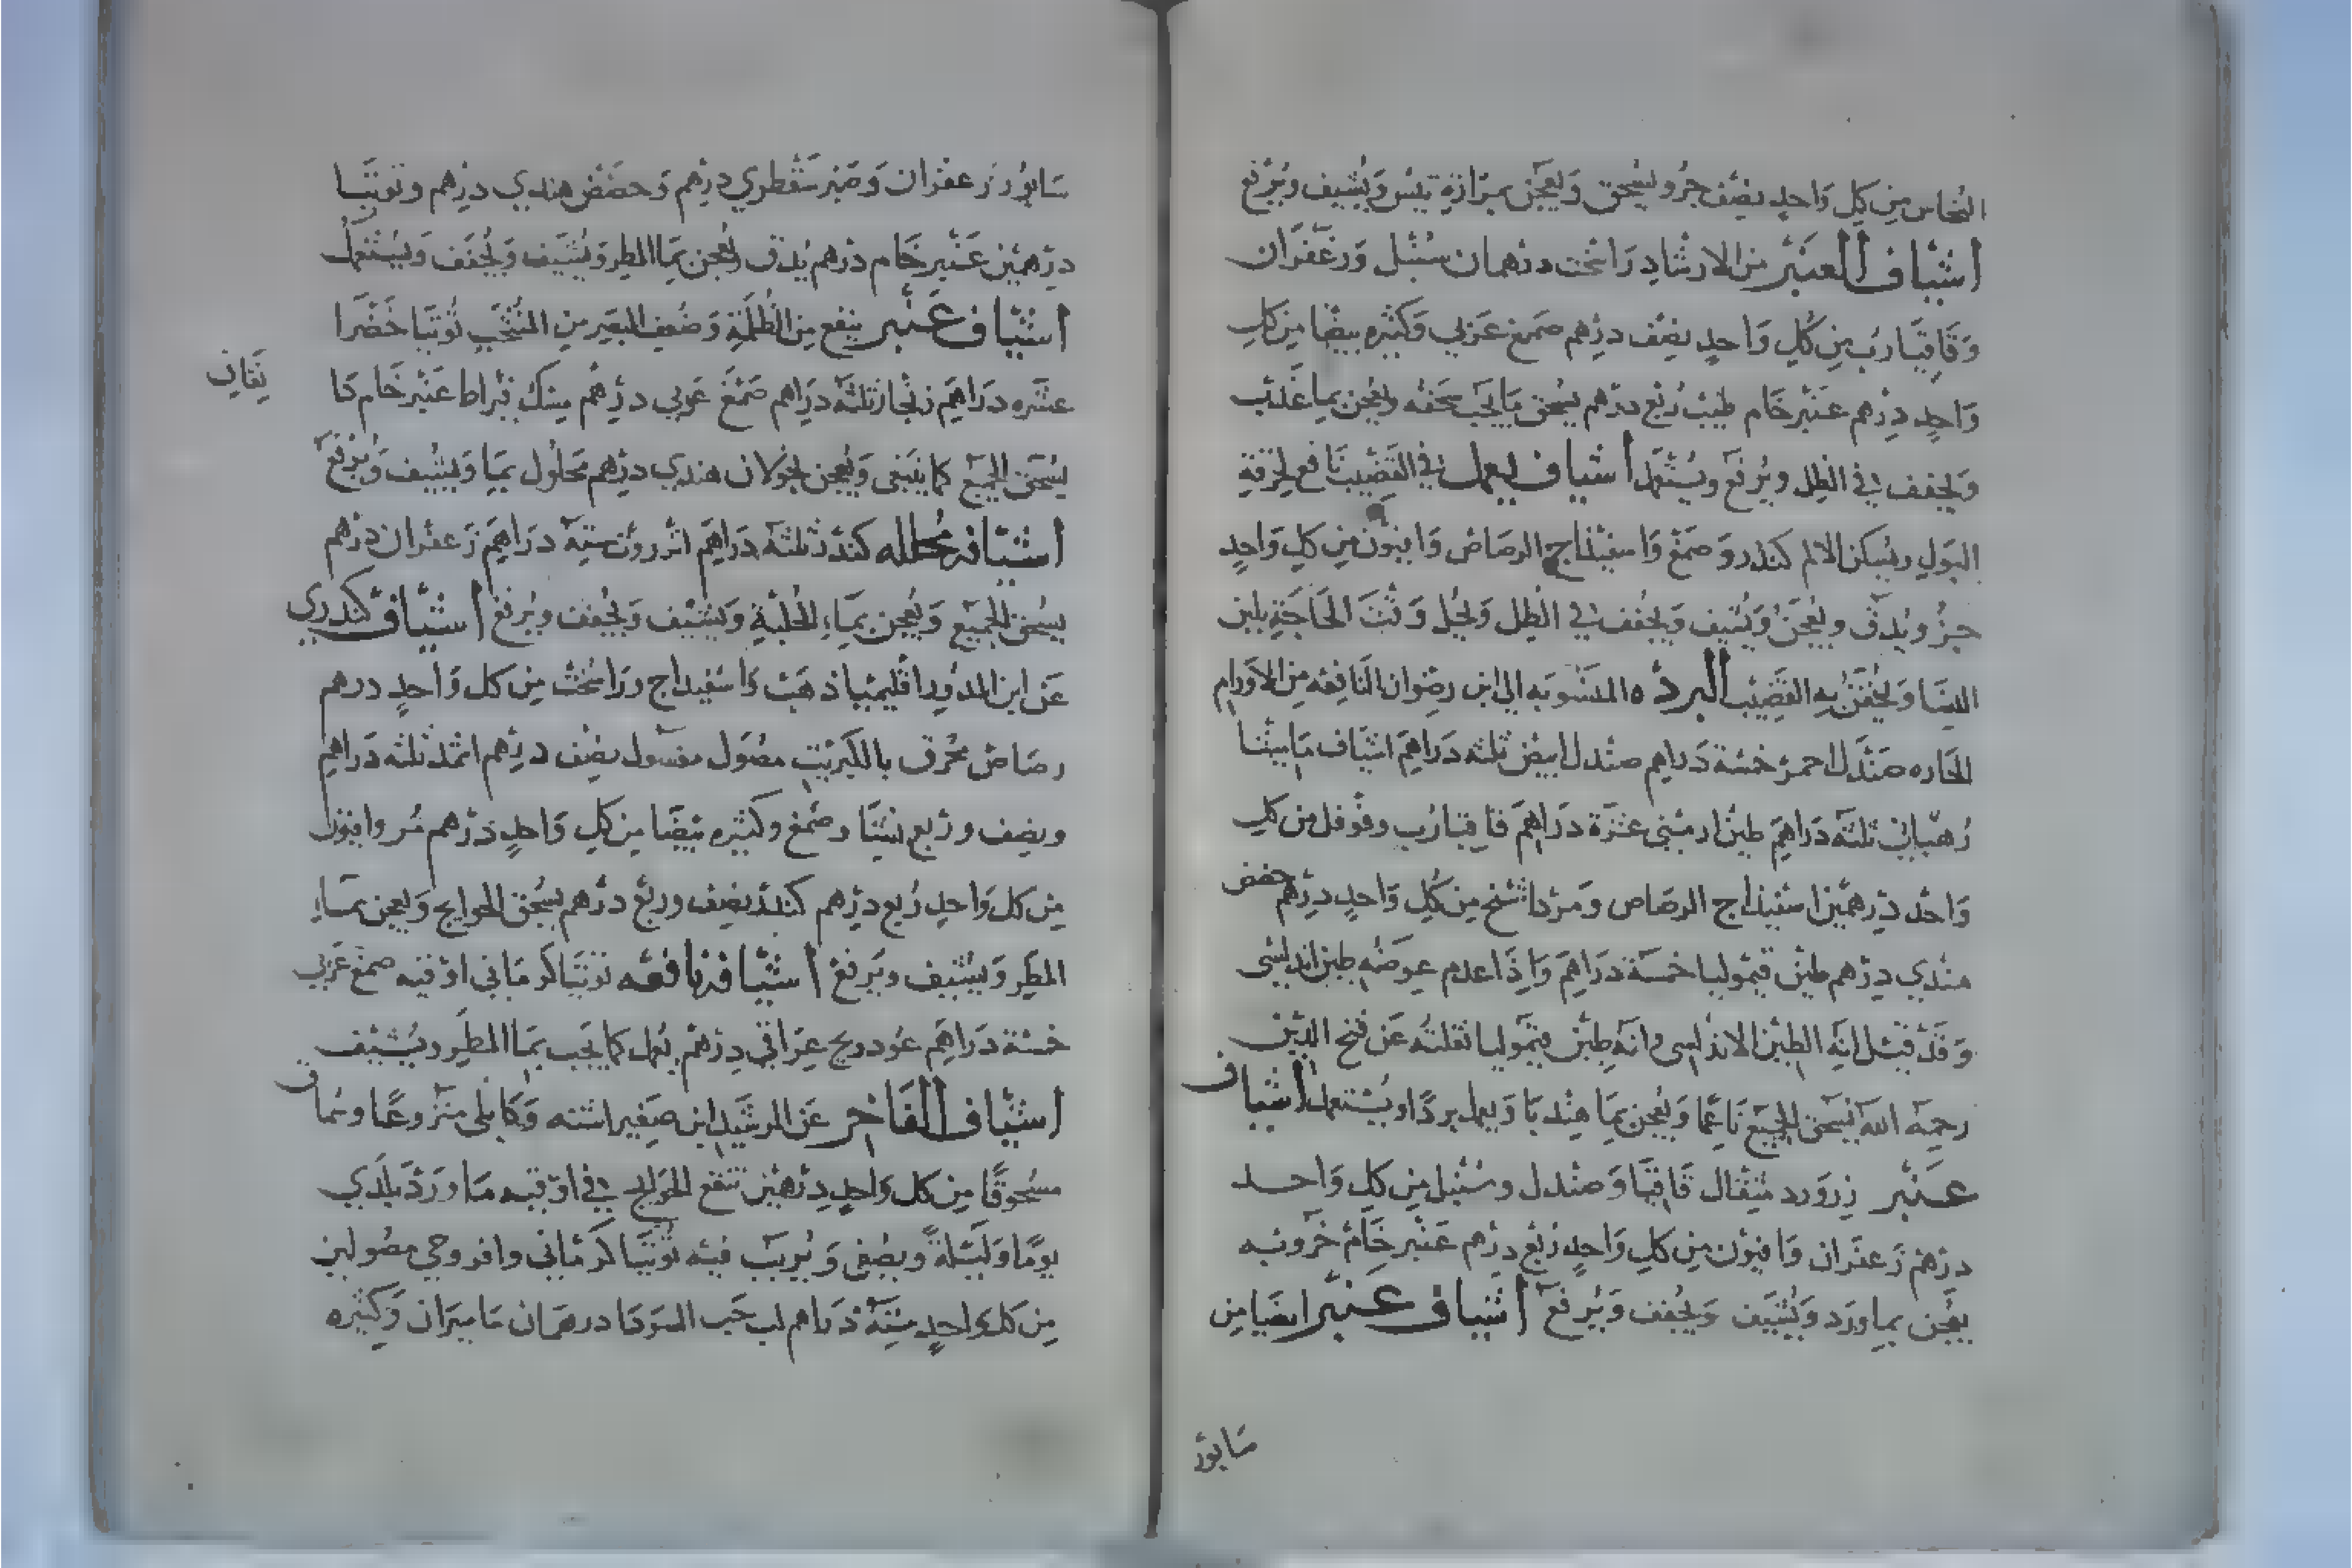 النحاس من كل واحد نصف جزو يسحق ويعجن بمرارة تيس ويشيف ويرفع
أشياف العنبر من الارشاد راسخت درهمان سنبل وزعفران
وقاقيا رب من كل واحد نصف درهم صمغ عربي وكثيره بيضا من كل
واحد درهم عنبر خام طيب ربع درهم يسحق ما يجب سحقه ويعجن بما عذب
ويجفف في الظل ويرفع ويستعمل أشياف يعمل في القضيب نافع لحرقة
البول ويسكن الالم كندر وصمغ واسفيذاج الرصاص وافيون من كل واحد
جزو يدق ويعجن ويشيف ويجفف في الظل ويحل وقت الحاجة بلبن
النسا ويحقن به القضيب البرده المنسوبه الي ابن رضوان النافعه من الاورام
الحاره صندل احمر خمسة دراهم صندل ابيض ثلثه دراهم اشياف ماميثا
رهباني ثلثه دراهم طين ارميني عشرة دراهم قاقيا رب وفوفل من كل
واحد درهمين اسفيذاج الرصاص ومرداسنج من كل واحد درهم حضض
هندي درهم طين قيموليا خمسة دراهم واذا عدم عوضه طين اندلسي
وقد قيل انه الطين الاندلسي وانه طين قيموليا نقلته عن فتح الدين
رحمه الله يسحق الجميع ناعما ويعجن بما هندبا ويعمل بردا ويستعمل أشياف
عنبر زرورد مثقال قاقيا وصندل وسنبل من كل واحد
درهم زعفران وافيون من كل واحد ربع درهم عنبر خام خروبه
يعجن بماورد ويشيف ويجفف ويرفع أشياف عنبر ايضا من
سابور
سابور زعفران وصبر سقطري درهم وحضض هندي درهم وتوتيا
درهمين عنبر خام درهم يدق ويعجن بما المطر ويشيف ويجفف ويستعمل
أشياف عنبر ينفع من الظلمة وضعف البصر من المنتخب توتيا خضرا
عشره دراهم زنجار ثلثه دراهم صمغ عربي درهم مسك قيراط عنبر خام
يسحق الجميع كما ينبغي ويعجن بخولان هندي درهم محلول بما ويشيف ويرفع
أشياف محلله كندر ثلثه دراهم انزروت ستة دراهم زعفران درهم
يسحق الجميع ويعجن بماء الحلبة ويشيف ويجفف ويرفع أشياف كندري
عن ابن المدور اقليميا ذهب واسفيداج وراسخت من كل واحد درهم
رصاص محرق بالكبريت مصول مغسول نصف درهم اثمد ثلثه دراهم
ونصف وربع نشا وصمغ وكثيره بيضا من كل واحد درهم مر وافيون
من كل واحد ربع درهم كندر نصف وربع درهم يسحق الحوايج ويعجن بماء
المطر ويشيف ويرفع أشياف نافعه توتيا كرماني اوقيه صمغ عربي
خمسة دراهم عود ريح عراقي درهم يعمل كما يجب بما المطر ويشيف
أشياف الفاخر عن الرشيد ابن صغير اشنه وكابلي منزوعا وسماق
مسحوقا من كل واحد درهمين تنقع الحوايج في اوقيه ماورد بلدي
يوما وليلة ويصفى ويربب فيه توتيا كرماني وافروجي مصولين
من كل واحد ستة دراهم لب حب السودا درهمان ماميران وكثيره